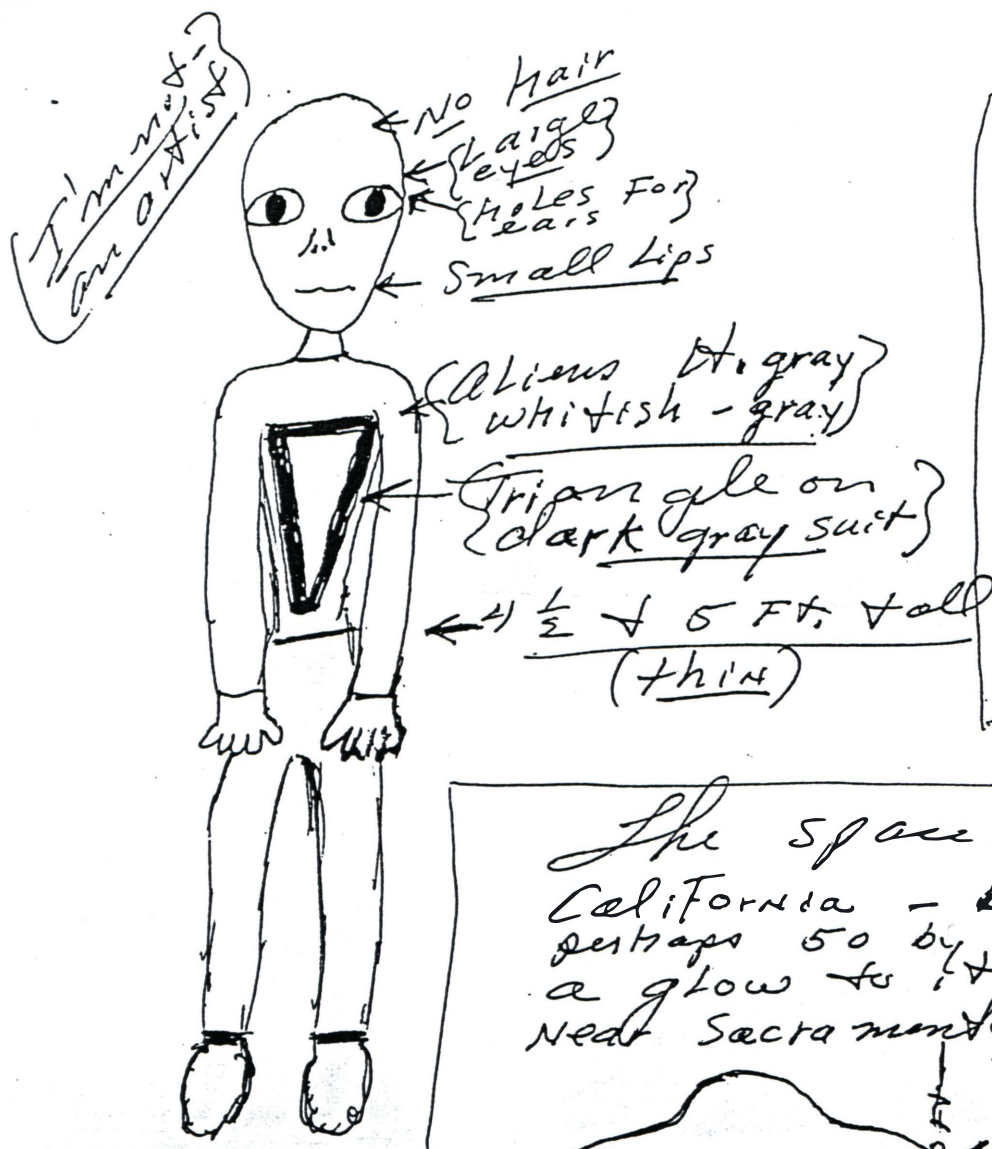 I'm not
an artist
No hair
Large
eyes
Holes For
ears
Small Lips
Aliens Lt. gray
whitish - gray
Triangle on
dark gray suit
4 1/2 t 5 Ft. tall
(thin)
The space
California -
perhaps 50 by
a glow to it
Near Sacramento